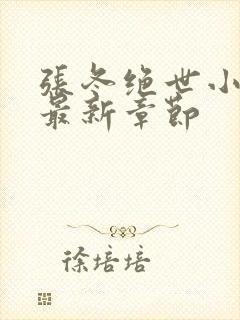 張冬绝世小
最新章節
徐培培